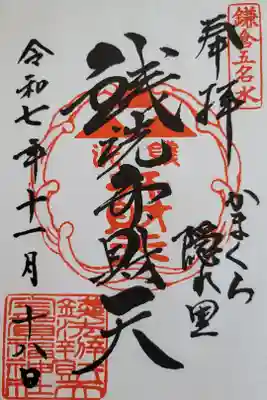 鎌倉五名水
奉拝
かまくら
隠れ里
銭洗弁財天
令和七年十一月十八日